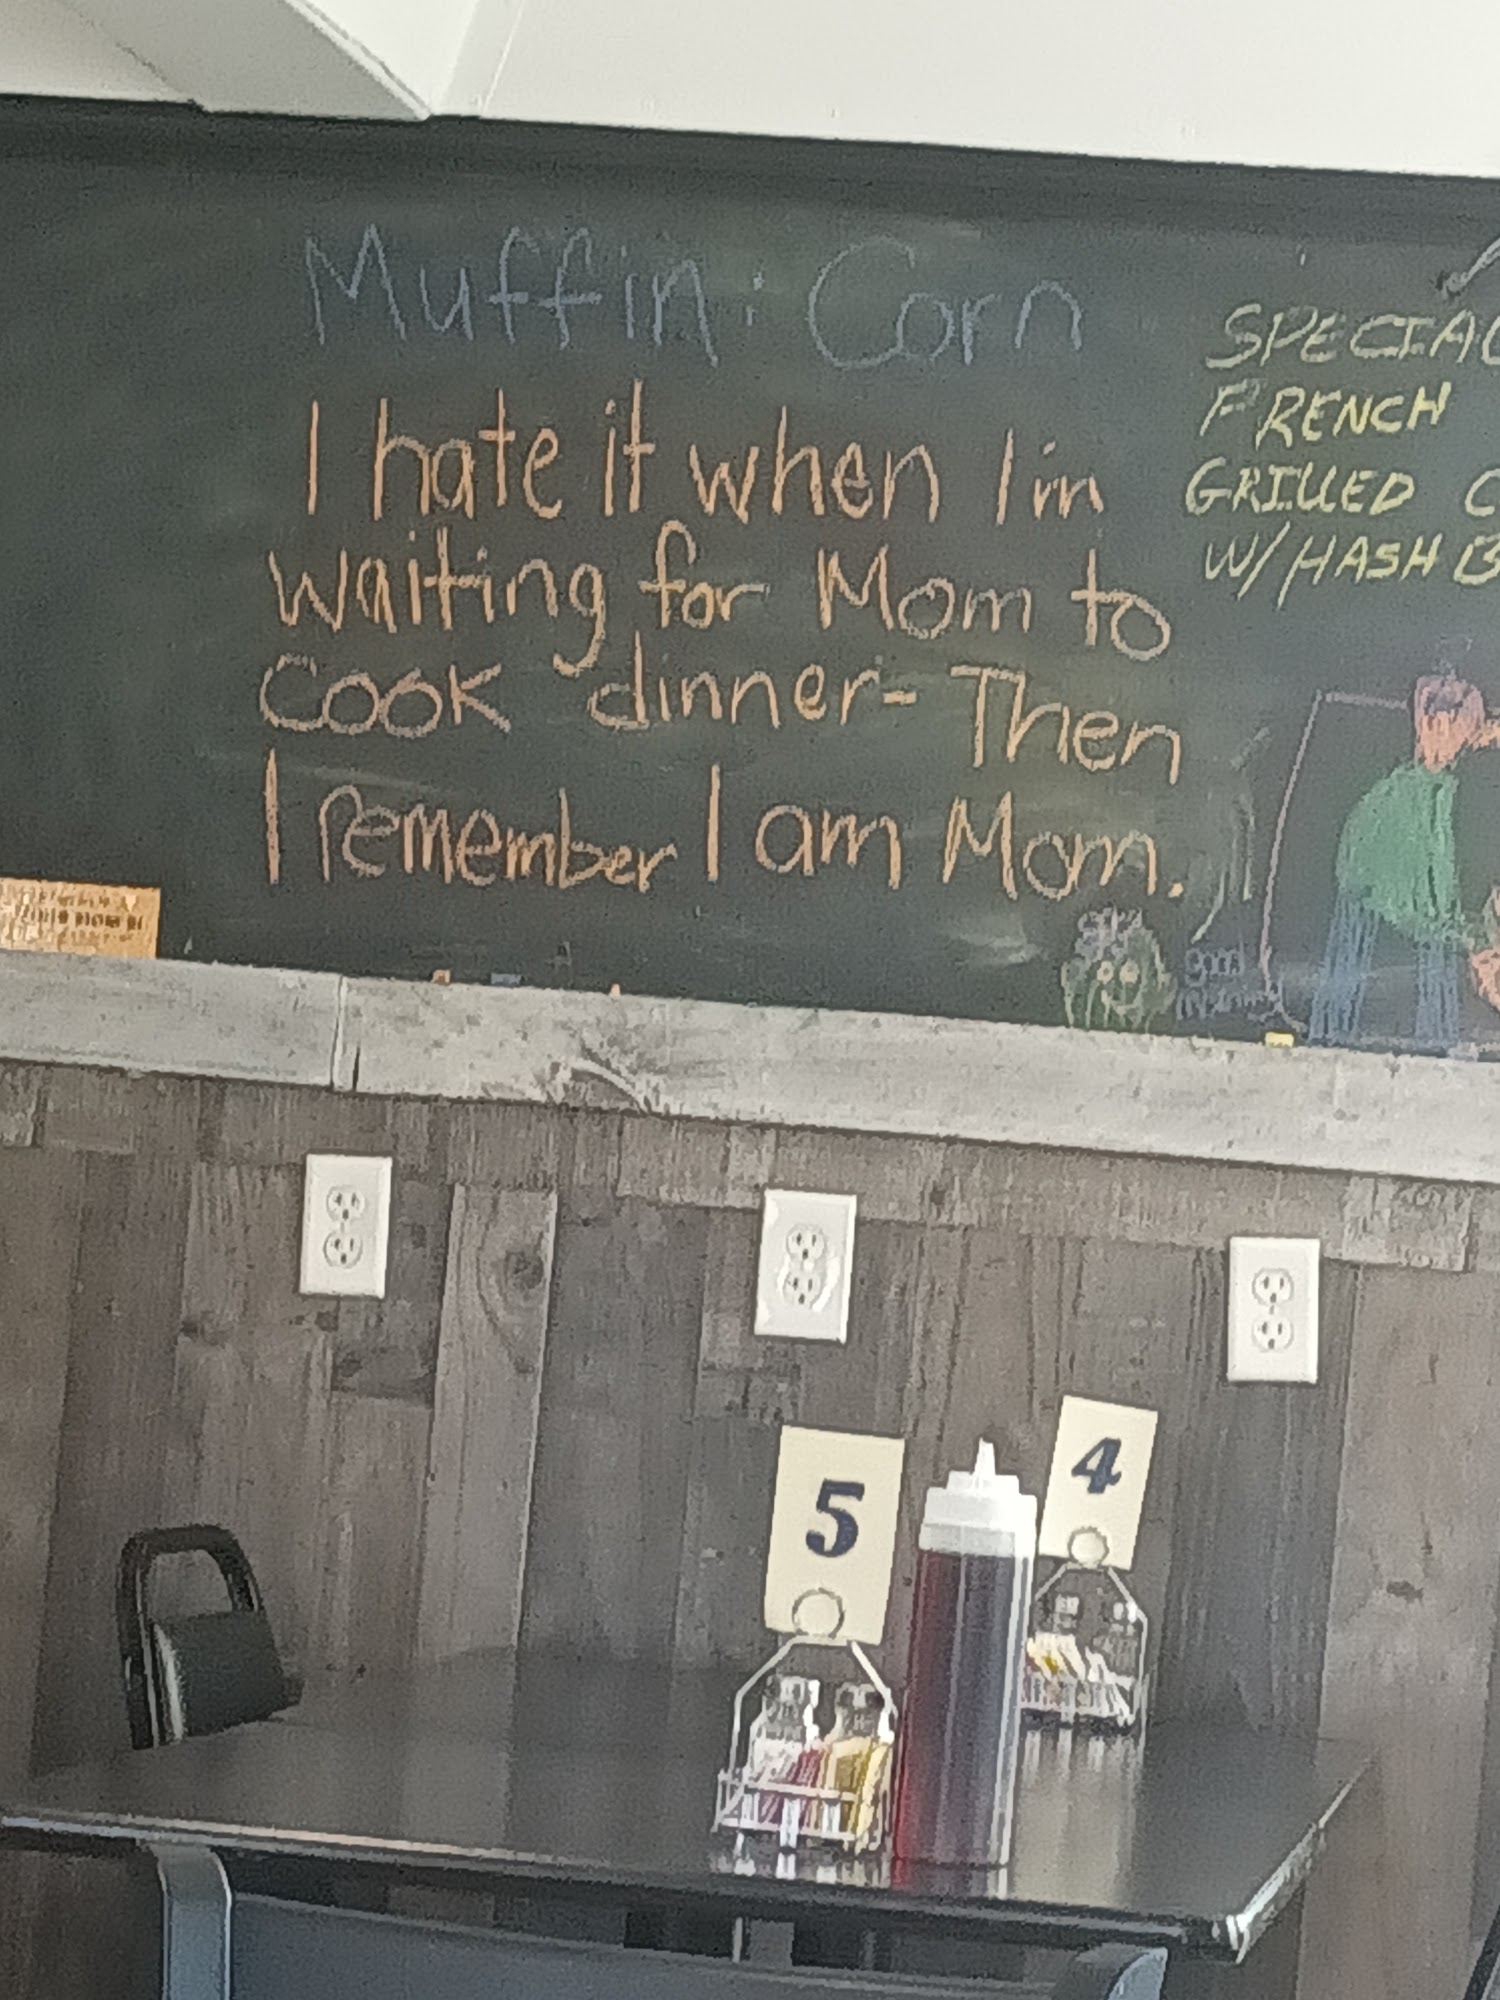 Muffin: Corn
I hate it when I'm
waiting for Mom to
Cook dinner- Then
I remember I am Mom.
SPECIAL
FRENCH
GRILLED C
W/HASH B
Good
5
4